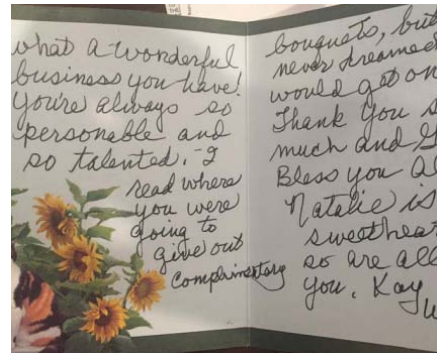 what a wonderful
business you have!
You're always so
personable and
so talented. - I
read where
you were
going to
give out
complimentary
bouquets, but
never dreamed
would get on
Thank you s
much and G
Bless you al
Natalie is
sweethear
so are all
you. Kay